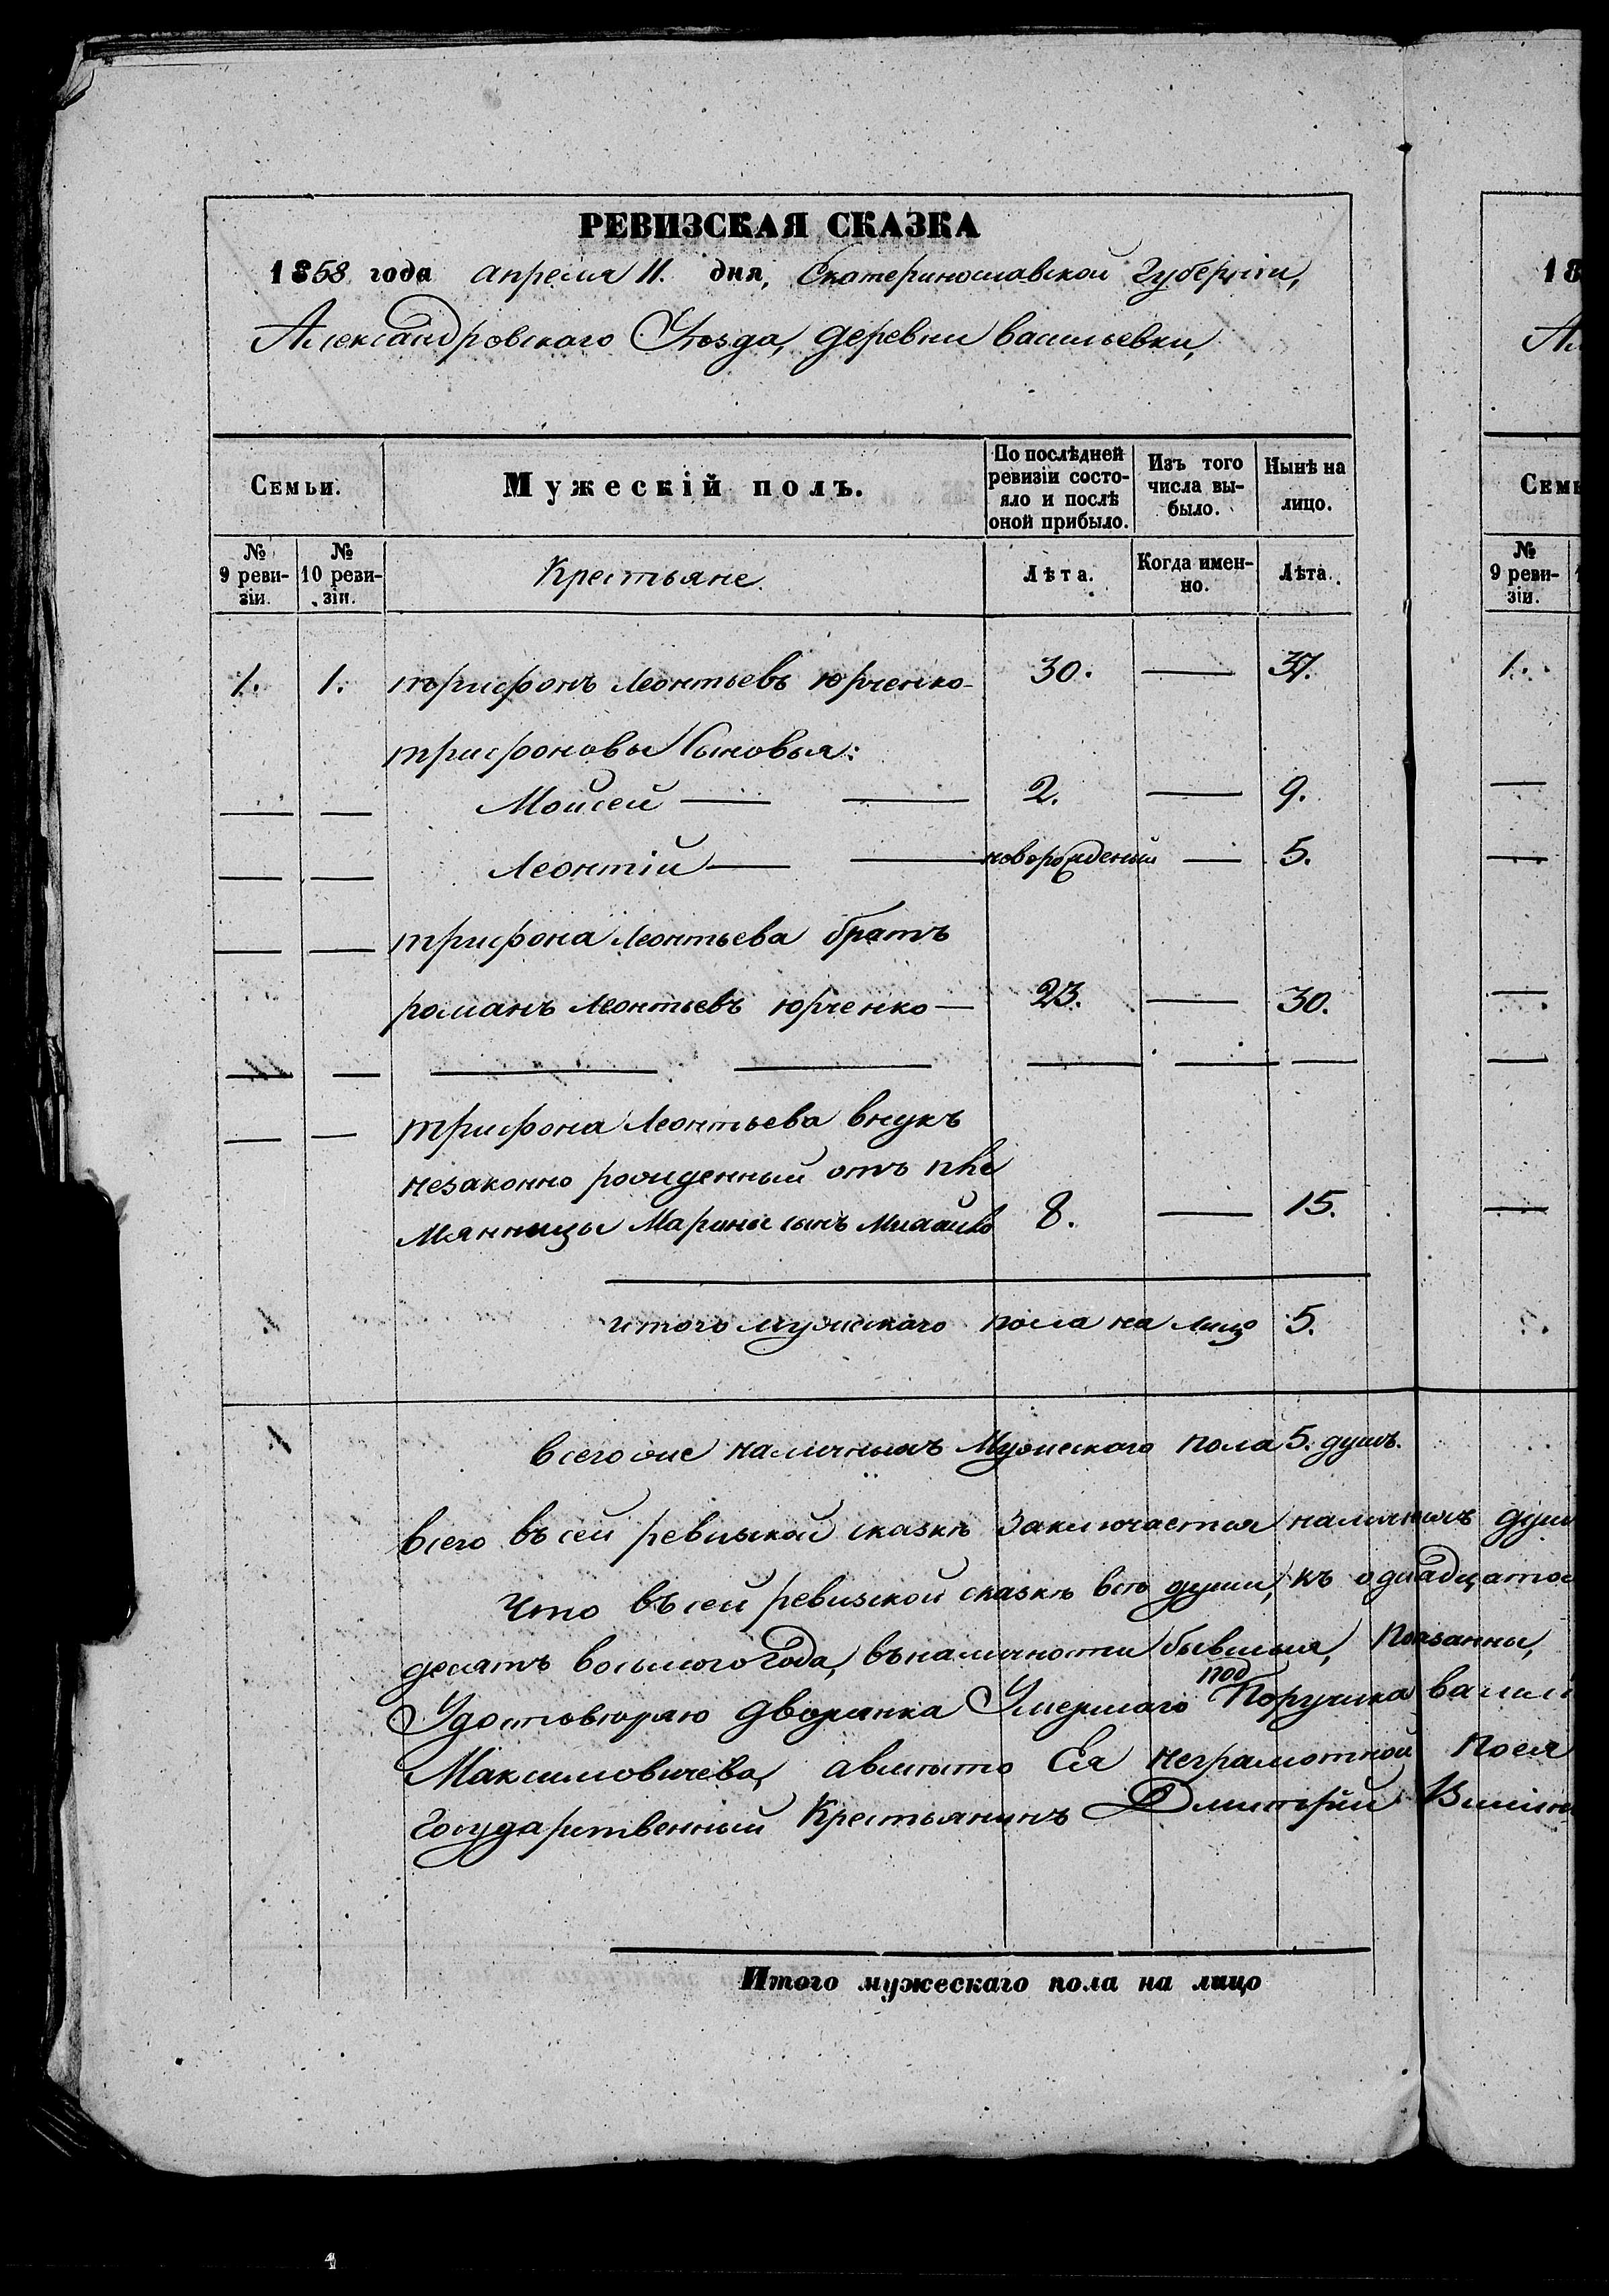 РЕВИЗСКАЯ СКАЗКА
1858 года апреля 11. дня, Екатеринославской Губернiи,
Александровскаго Уѣзда, деревни васильевки,
Семьи.
Мужескiй полъ.
По послѣдней ревизiи состо-
яло и послѣ
оной прибыло.
Изъ того
числа вы-
было.
Нынѣ на
лицо.
№
9 реви-
зiи.
№
10 реви-
зiи.
Крестьяне.
Лѣта.
Когда имен-
но.
Лѣта.
1. 1. трифонъ Леонтьевъ юрченко 30. — 37.
трифоновы Сыновья:
— — Моисей — — 2. — 9.
— — Леонтiй — — новорожденый — 5.
— — трифона Леонтьева братъ
романъ Леонтьевъ юрченко — 23. — 30.
— — — — — — —
— — трифона Леонтьева внукъ
незаконно рожденный отъ пле
Мянницы Марины сынъ 8. — 15.
итого мужескаго пола на Лицо 5.
всего же наличныхъ Мужескаго пола 5. душъ.
всего въ сей ревизской сказкѣ Заключается наличныхъ душ
Что въ сей ревизской сказкѣ всѣ души, къ одинадцатое
десятъ восьмого Года, въ наличности бывшыя, Показанны,
под
Удостовѣряю дворянка Умершаго Поручика васил
Максимовичева, авмѣсто Ея неграмотной поея
Государственный Крестьянинъ Дмитрiй
Итого мужескаго пола на лицо
18
Ал
Семь
№
9 реви-
зiи.
1.
—
—
—
—
—